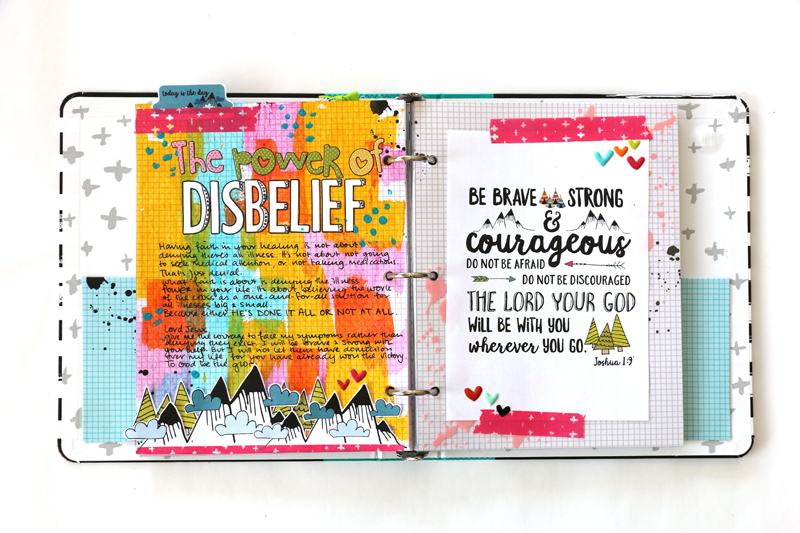 today is the day
The power of
DISBELIEF
Having faith in your healing is not about
denying there's an illness. It's not about not going
to seek medical attention, or not taking medications.
That's just denial.
what faith is about is denying the illness
POWER in your life. It's about believing the work
of the cross as a one-and-for-all solution for
all illnesses big & small.
Because either HE'S DONE IT ALL OR NOT AT ALL.
Lord Jesus,
Give me the courage to face my symptoms rather than
denying they exist. I will be brave & strong with
your help. But I will not let them have dominion
over my life for you have already won the victory.
To God be the glory
BE BRAVE STRONG
&
courageous
DO NOT BE AFRAID
DO NOT BE DISCOURAGED
THE LORD YOUR GOD
WILL BE WITH YOU
wherever YOU GO.
Joshua 1:9